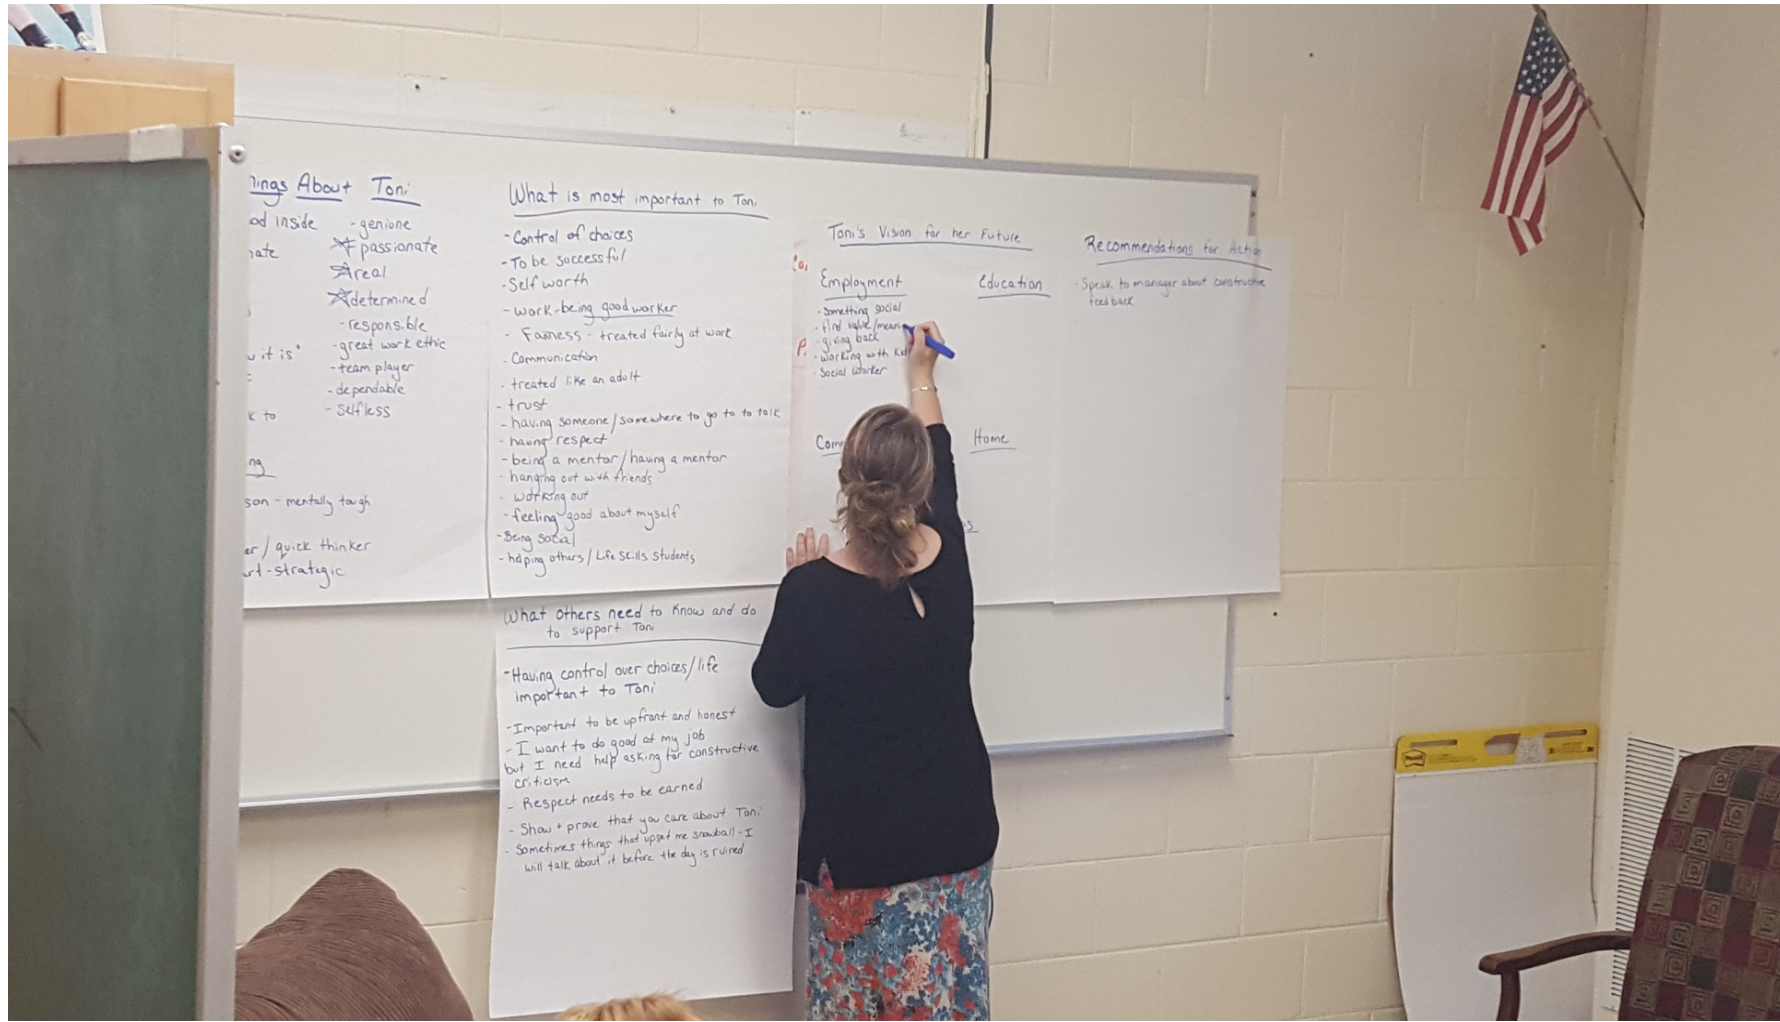 About Toni
inside
- genione
passionate
real
determined
- responsible
it is"
- great work ethic
- team player
- dependable
to
- Selfless
- mentally tough
/ quick thinker
- strategic
What is most important to Toni
- Control of choices
- To be successful
- Self worth
- work - being good worker
- Fairness - treated fairly at work
- Communication
- treated like an adult
- trust
- having someone/somewhere to go to to talk
- having respect
- being a mentor/having a mentor
- hanging out with friends
- working out
- feeling good about myself
- Being social
- helping others/Life Skills Students
What others need to know and do
to support Toni
- Having control over choices/life
important to Toni
- Important to be upfront and honest
- I want to do good at my job
but I need help asking for constructive
criticism
- Respect needs to be earned
- Show + prove that you care about Toni
- Sometimes things that upset me snowball - I
will talk about it before the day is ruined
Toni's Vision for her Future
Employment
- Something social
- find value/
- giving back
- working with
- Social Worker
Education
Home
Recommendations for Action
- Speak to manager about constructive
feedback
Post-it